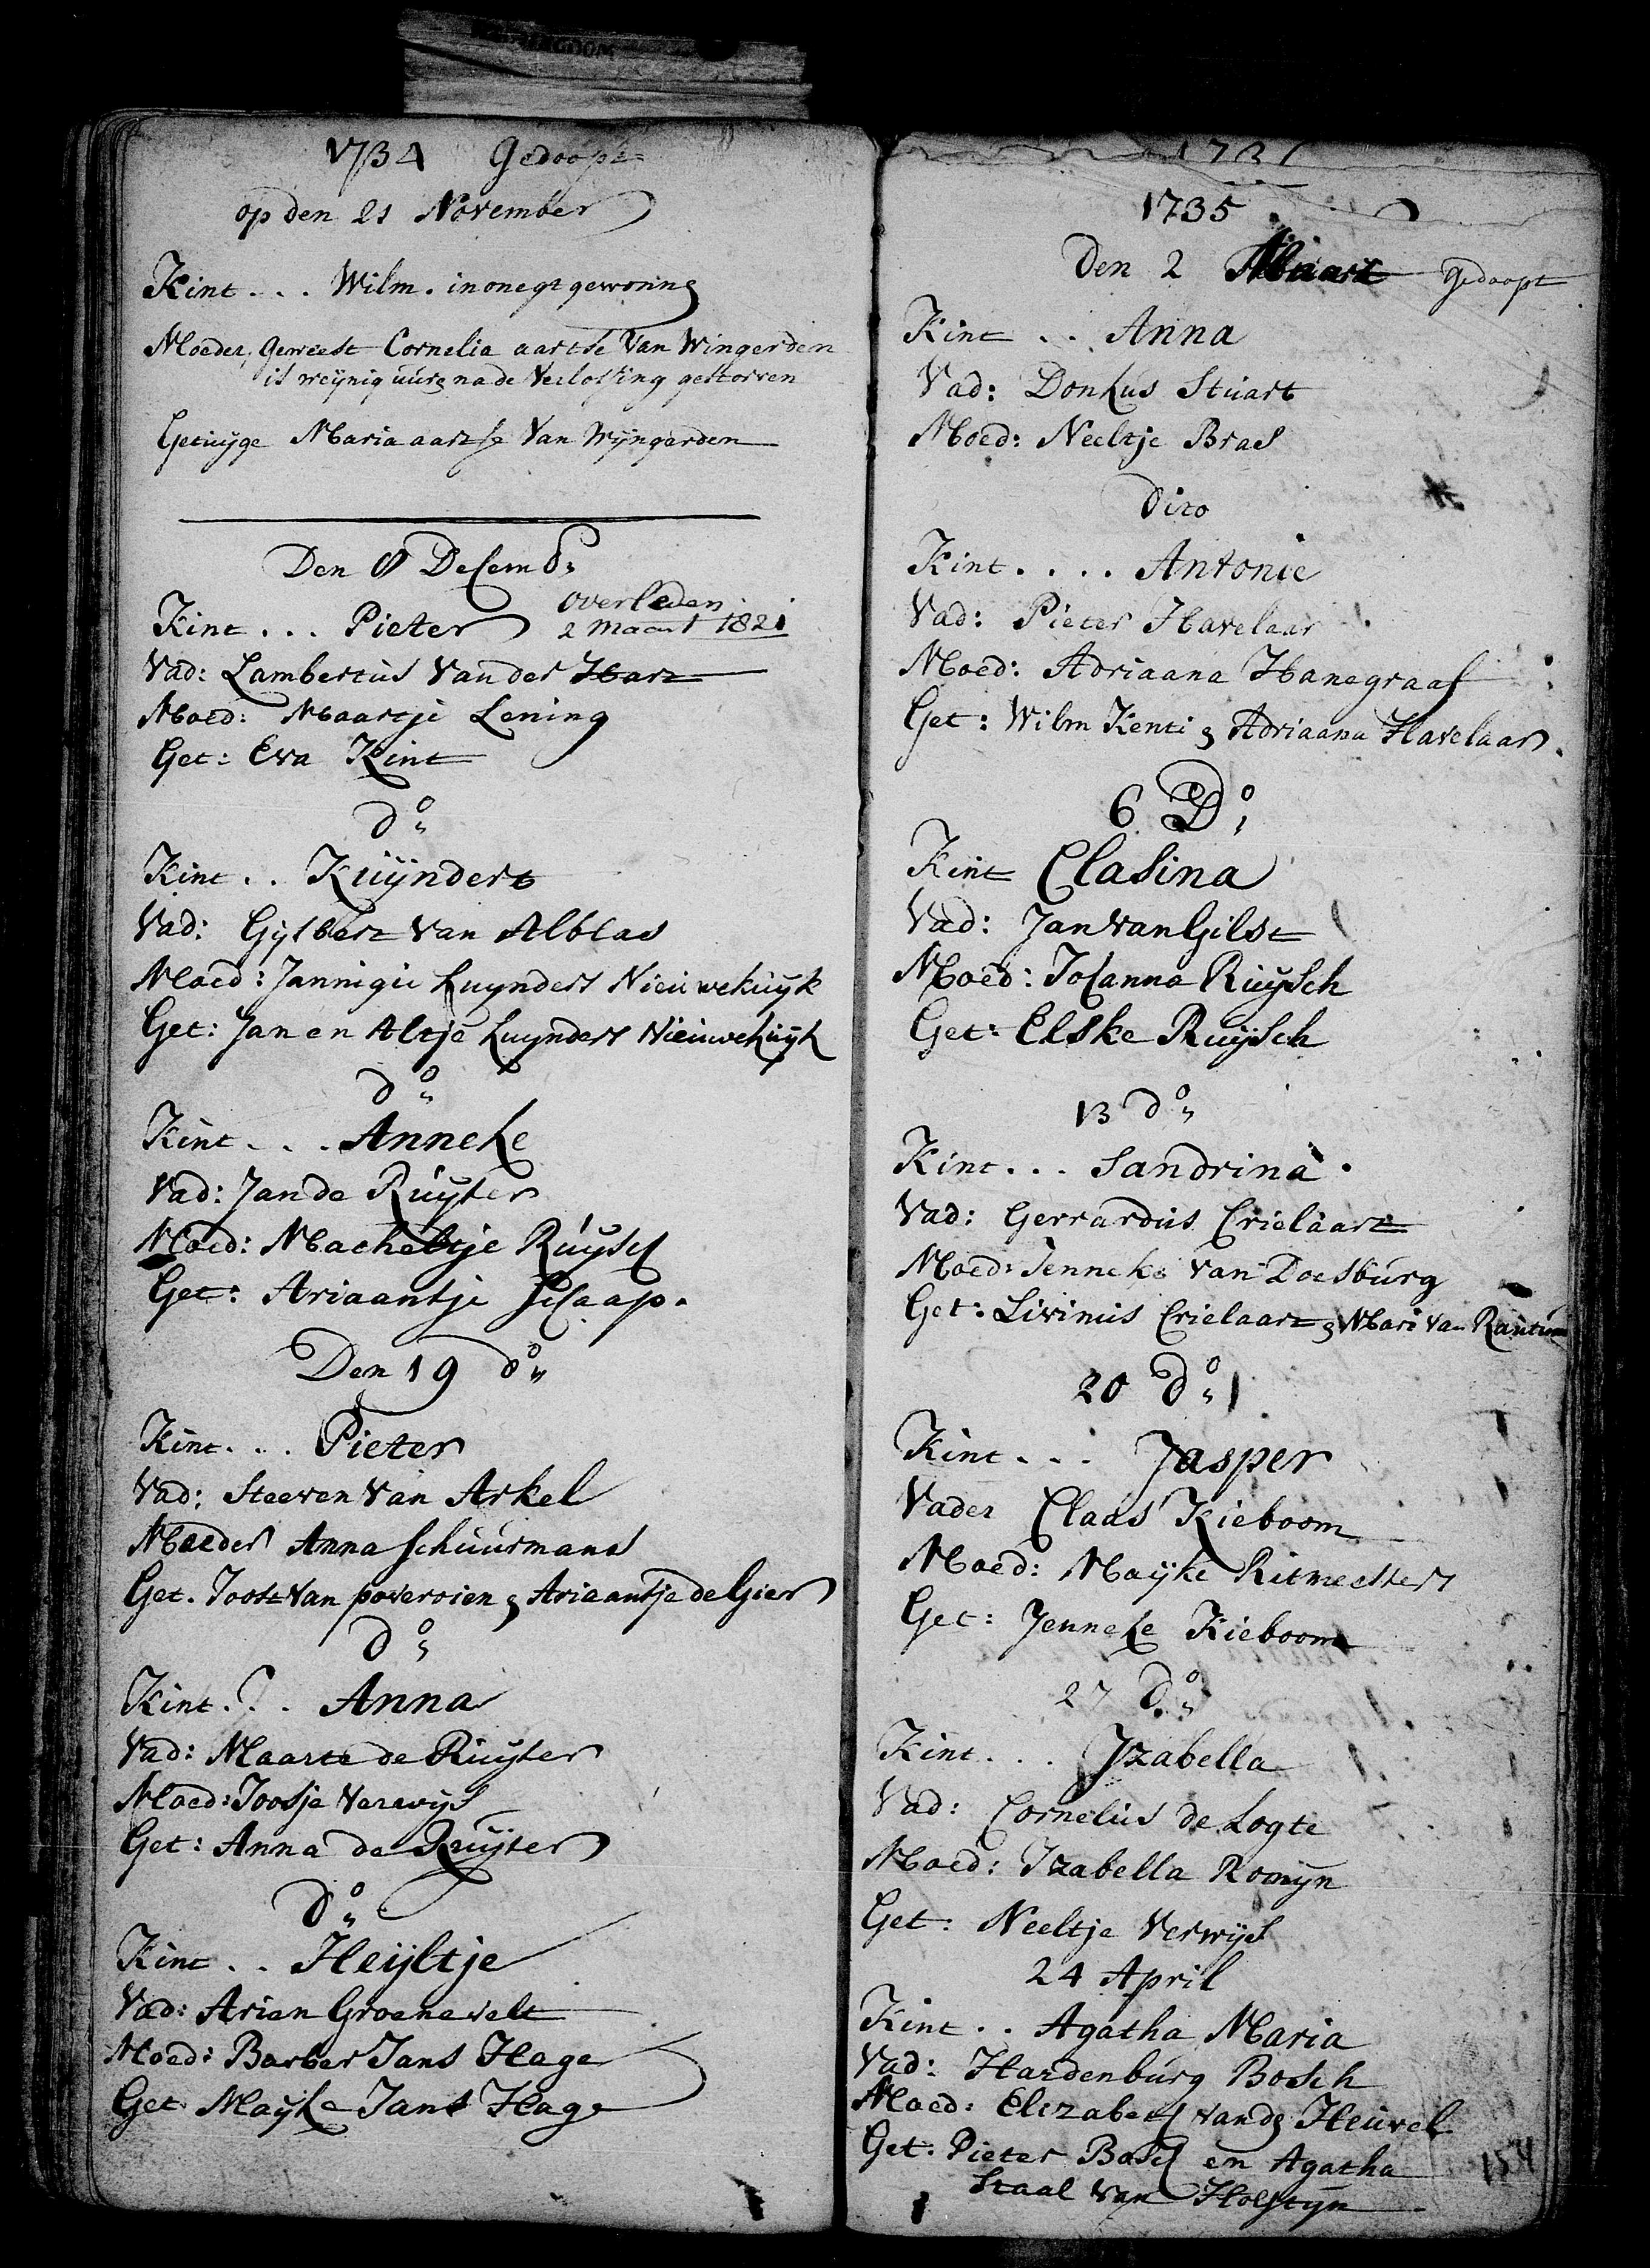 1734 Gedoopt
op den 21 November
Kint . . . Wilm . in onegt gewonne
Moeder, Geweest Cornelia aartse Van Wingerden
is weijnig uure na de Verlossing gestorven
Getuijge Maria aartse Van Wijngarden
Den Decemb:
Kint . . . Pieter overleden
2 maart 1821
Vad: Lambertus Van der Hart
Moed: Maartje Lening
Get: Eva Kint
do
Kint . . Kuijndert
Vad: Gijsbert Van Alblas
Moed: Jannigie kuijnders Nieuwekuijk
Get: Jan en Altje kuijnders Nieuwekuijk
do
Kint . . . Anneke
Vad: Jan de Ruijter
Moed: Macheltje Ruijsch
Get: Ariaantje Schaap.
Den 19 do
Kint . . . Pieter
Vad: Steeven Van Arkel
Moeder Anna Schuurmans
Get. Joost Van poveroien & Ariaantje de Gier
do
Kint . . . Anna
Vad: Maarte de Ruijter
Moed: Joosje Verwijs
Get: Anna de Ruijter
do
Kint . . Heijltje
Vad: Arien Groenevelt
Moed: Barber Jans Hage
Get Mayke Jans Hage
1735
Den 2 Maart Gedoopt
Kint . . Anna
Vad: Donkus Stuart
Moed: Neeltje Bras
Dito
Kint . . . . Antonie
Vad: Pieter Havelaar
Moed: Adriaana Hanegraaf
Get: Wilm Kenti & Adriaana Havelaar.
6 Do
Kint Clasina
Vad: Jan Van Gilst
Moed: Johanna Ruijsch
Get: Elske Ruijsch
13 do
Kint . . . Sandrina .
Vad: Gerrardus Crielaart
Moed: Jenneke Van Doesburg
Get: Livinus Crielaart & Mari Van
20 do
Kint . . . Jasper
Vader Claas Kieboom
Moed: Mayke Ritmeester
Get: Jenneke Kieboom
27 do
Kint . . . Yzabella
Vad: Cornelius de Logte
Moed: Izabella Romijn
Get: Neeltje Verwijs
24 April
Kint . . Agatha Maria
Vad: Hardenburg Bosch
Moed: Elizabeth Vande Heuvel
Get: Pieter Bosch en Agatha
Staal Van Holstijn